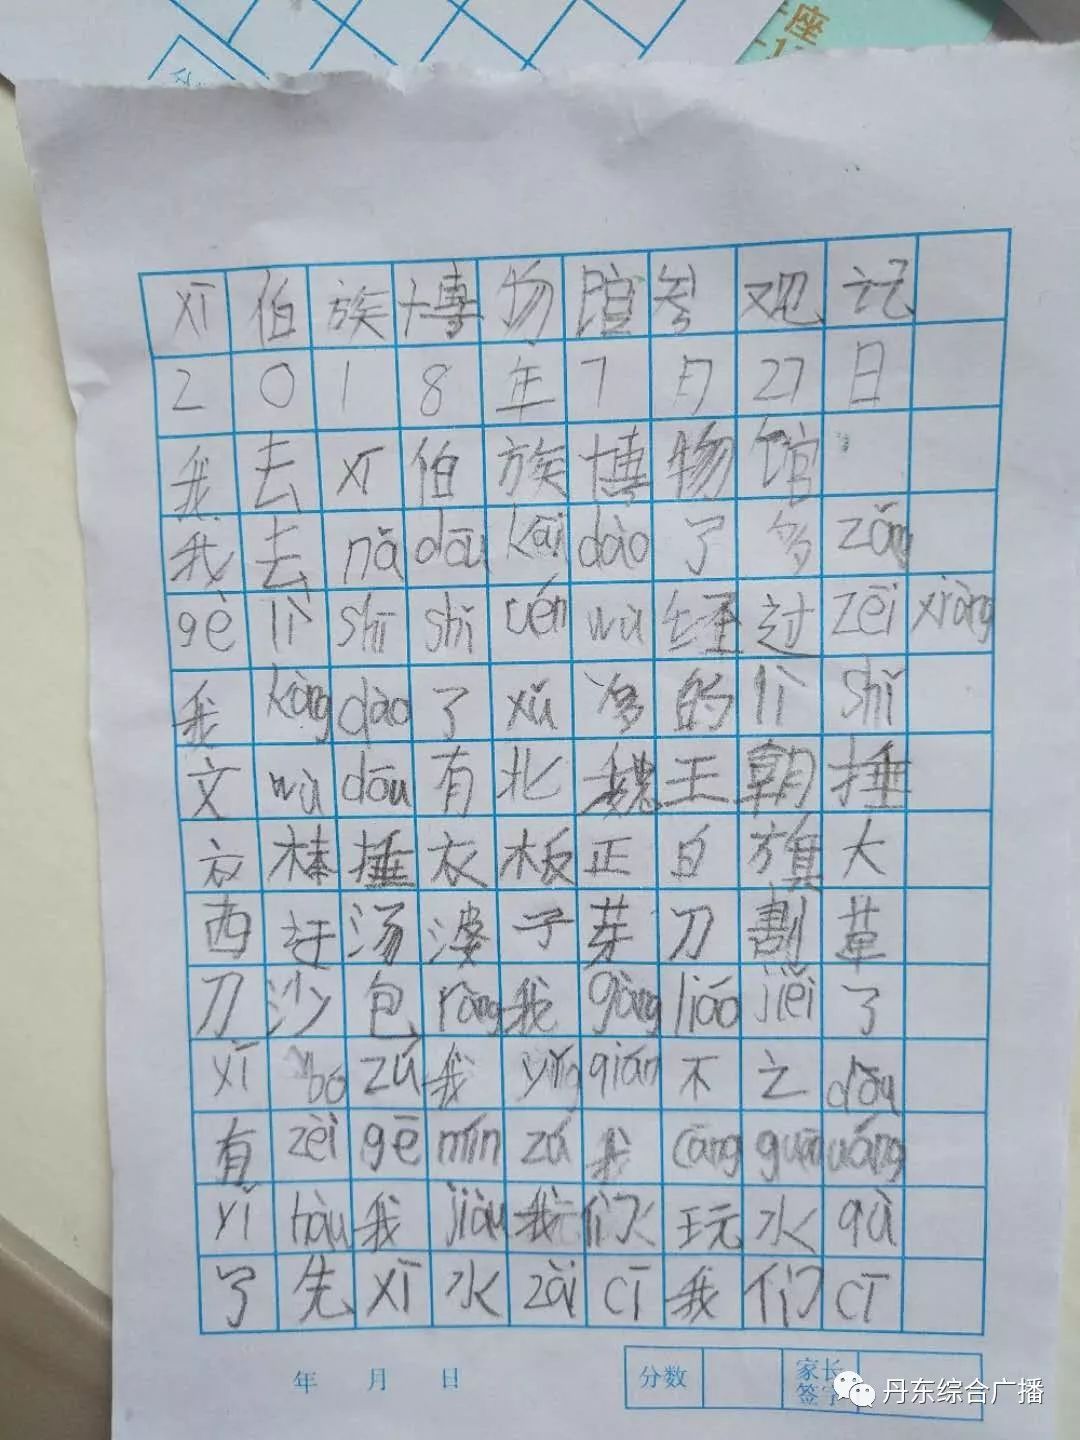 座
xī伯族博物馆参观记
2018年7月27日
我去xī伯族博物馆
我去nǎ dōu kāi dào了多zǎng
gè lì shī shī wén wù经过zēi xiàng
我kàng dào了xǔ多的lì shǐ
文wù dōu有北魏王朝捶
衣棒捶衣板正白旗大
西迁汤婆子芽刀割草
刀沙包ràng我gàng liáo jiěi了
xī bó zú我yǐng qián不之dōu
有zèi gē mín zú我cāng guān uáng
yǐ hòu我jiàu我们玩水qù
了先xī水zāi cī我们cī
年 月 日
分数
家长
签字
丹东综合广播